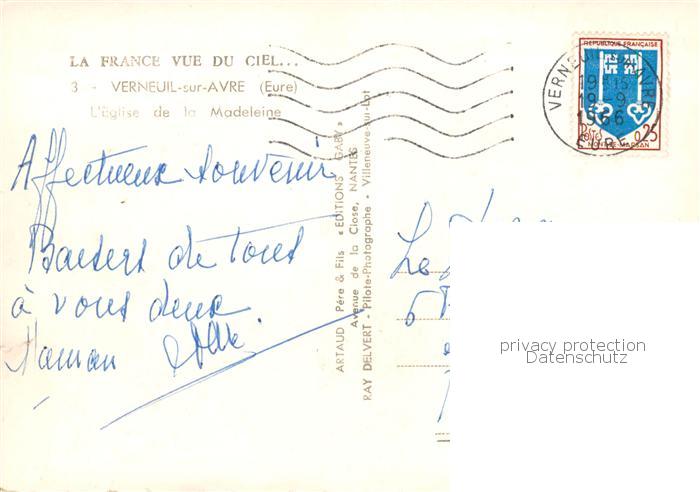 LA FRANCE VUE DU CIEL...
3 - VERNEUIL-sur-AVRE (Eure)
L'Église de la Madeleine
Affectueux souvenir
Baisers de tous
à vous deux
Maman
ARTAUD Père & Fils «EDITIONS GABY»
Avenue de la Close, NANTES
RAY DELVERT - Pilote-Photographe - Villeneuve-sur-Lot
REPUBLIQUE FRANÇAISE
Postes
0,25
MONT-DE-MARSAN
VERNEUIL-S-AVRE
1966
EURE
privacy protection
Datenschutz